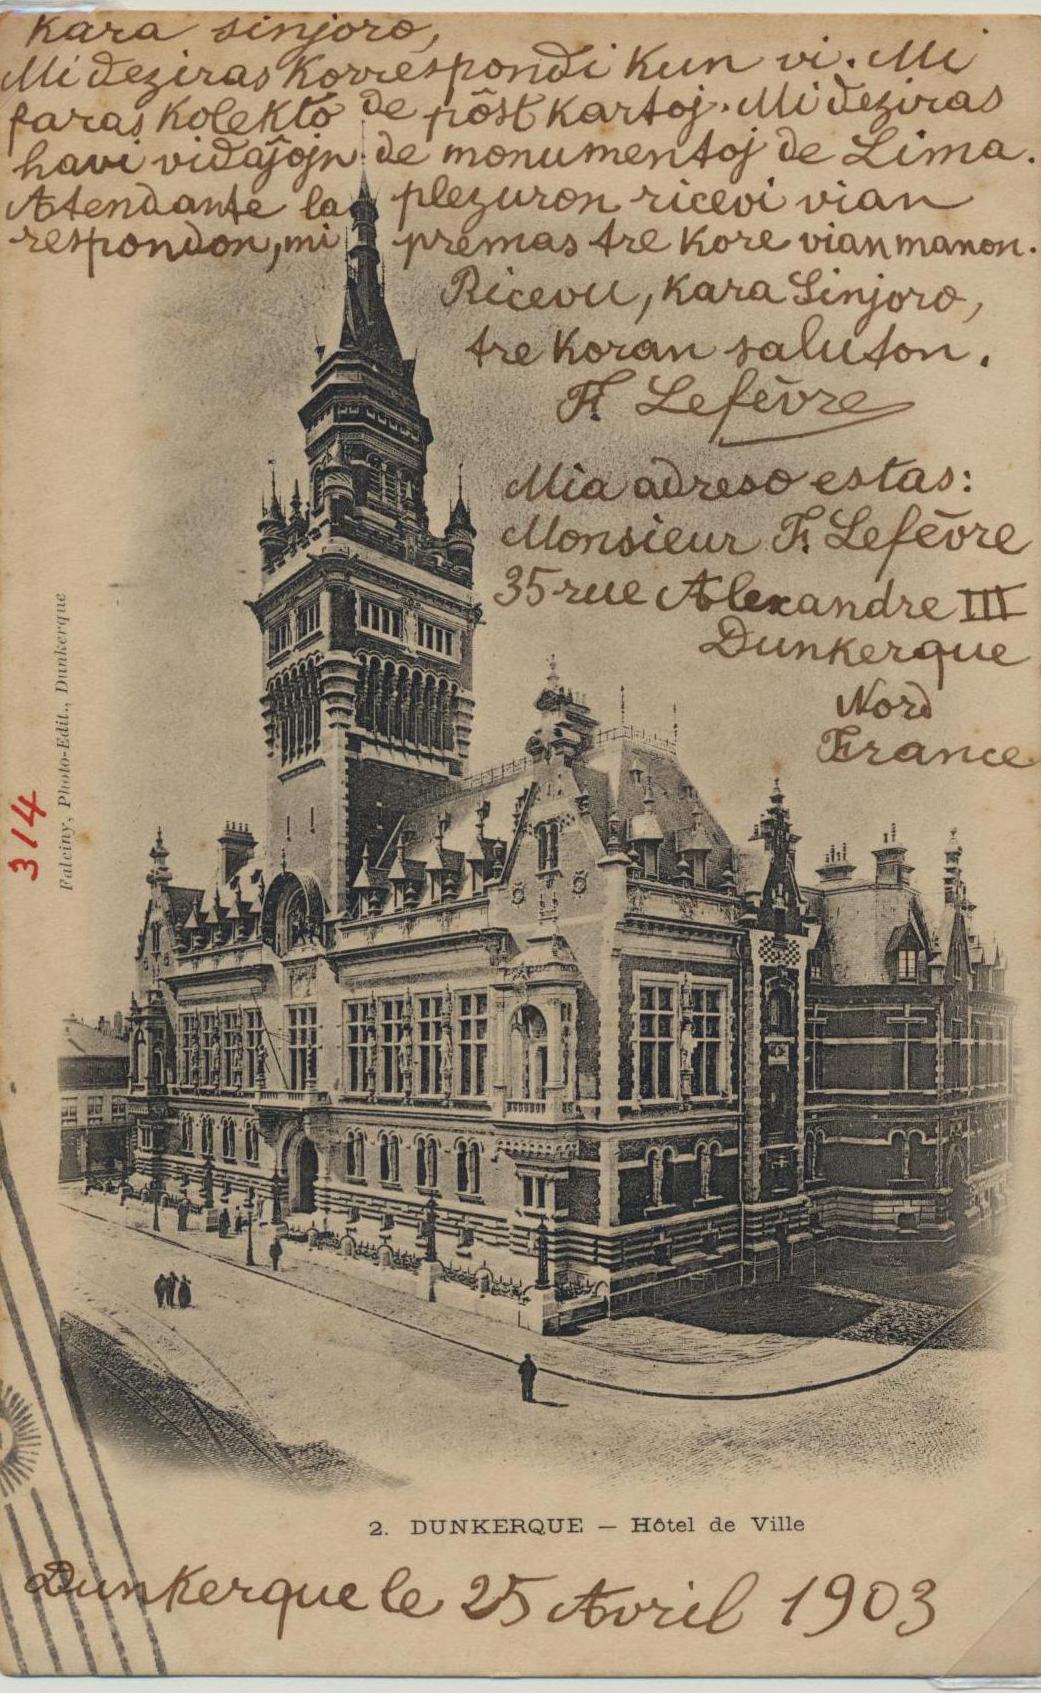 Kara sinjoro,
Mi deziras Korrespondi Kun vi. Mi
faras Kolekto de pôst Kartoj. Mi deziras
havi vidaĵojn de monumentoj de Lima.
Atendante la plezuron ricevi vian
respondon, mi premas tre Kore vian manon.
Ricevu, Kara Sinjoro,
tre Koran saluton.
F. Lefèvre
Mia adreso estas:
Monsieur F. Lefèvre
35 rue Alexandre III
Dunkerque
Nord
France
Falciny, Photo-Edit., Dunkerque
314
2. DUNKERQUE — Hôtel de Ville
Dunkerque le 25 Avril 1903